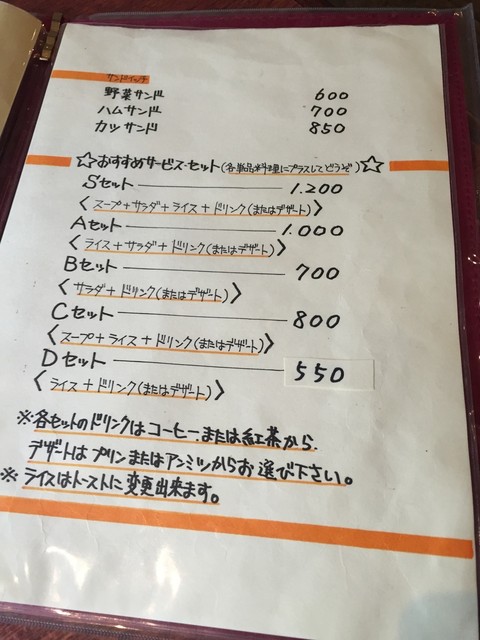 サンドイッチ
野菜サンド 600
ハムサンド 700
カツサンド 850
☆おすすめサービス・セット(各単品料理にプラスしてどうぞ)☆
Sセット 1.200
〈スープ+サラダ+ライス+ドリンク(またはデザート)〉
Aセット 1.000
〈ライス+サラダ+ドリンク(またはデザート)〉
Bセット 700
〈サラダ+ドリンク(またはデザート)〉
Cセット 800
〈スープ+ライス+ドリンク(またはデザート)〉
Dセット 550
〈ライス+ドリンク(またはデザート)〉
※各セットのドリンクはコーヒーまたは紅茶から.
デザートはプリンまたはアンミツからお選び下さい。
※ライスはトーストに変更出来ます。